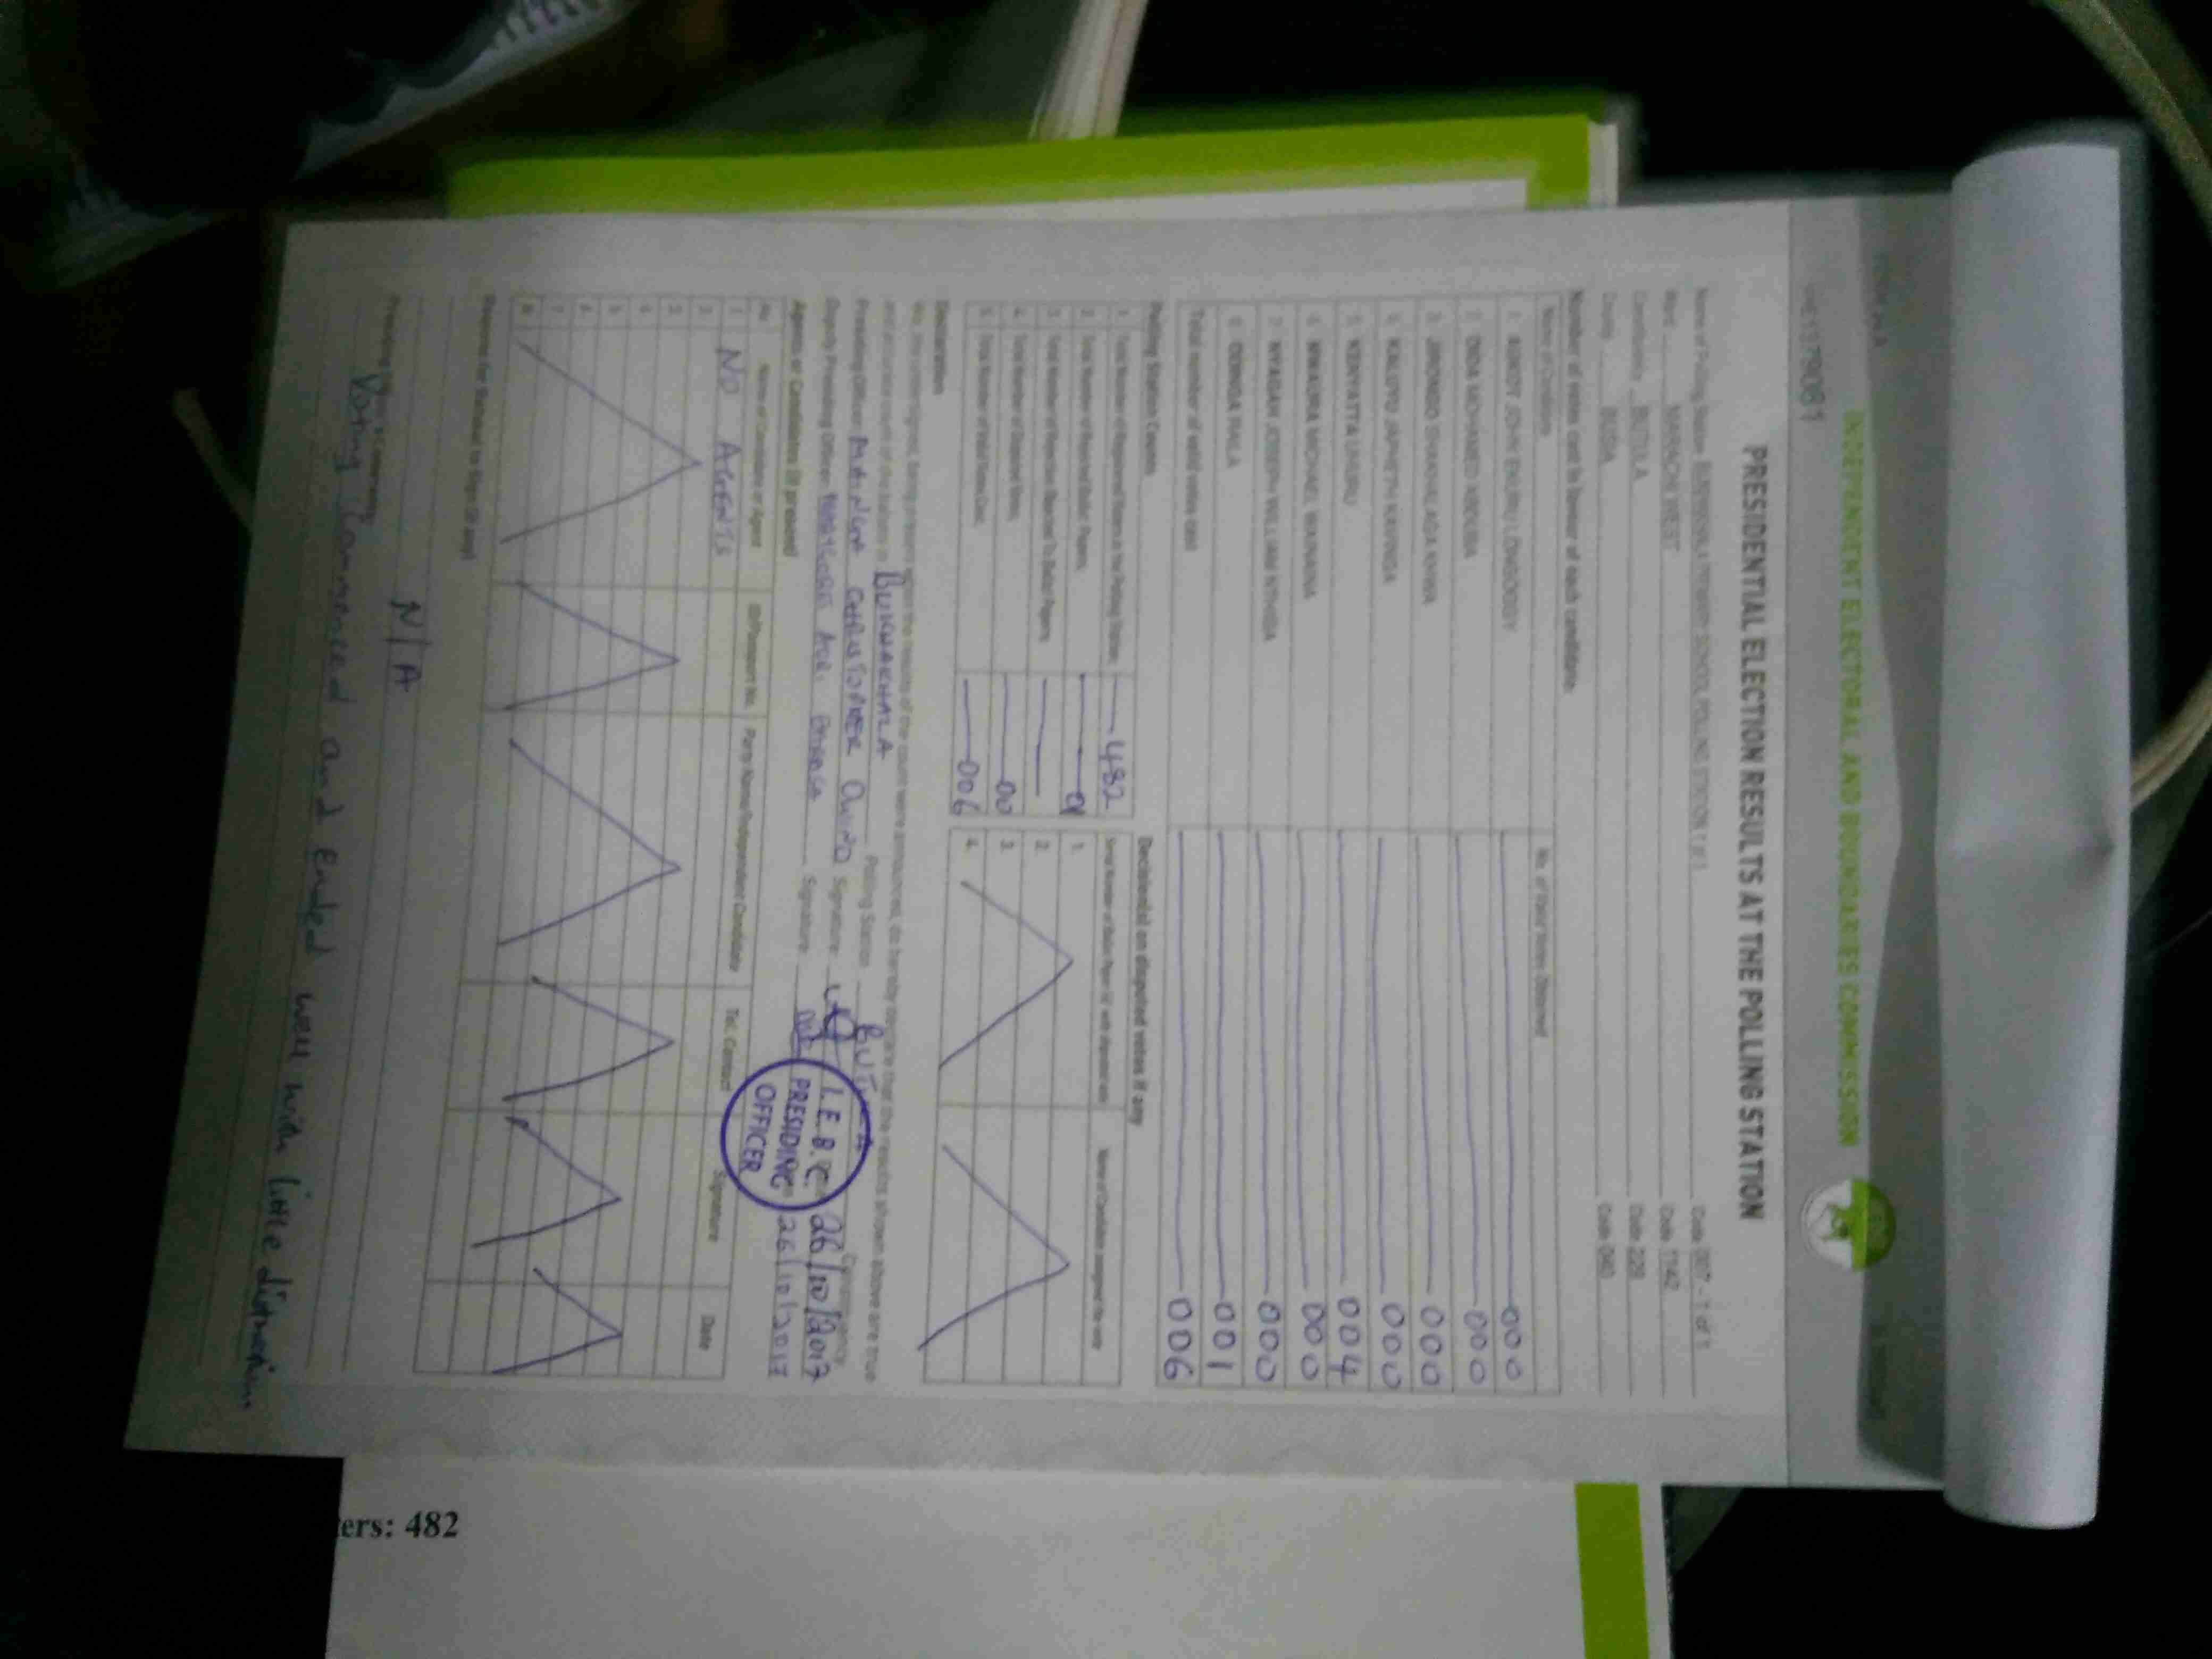 INDEPENDENT ELECTORAL AND BOUNDARIES COMMISSION
PRESIDENTIAL ELECTION RESULTS AT THE POLLING STATION
Name of Polling Station PRIMARY SCHOOL POLLING STATION 1 of 1 Code 007 - 1 of 1
Ward MARACHI WEST Code 1142
Constituency BUTULA Code 228
County BUSIA Code 040
Number of votes cast in favour of each candidate
Name of Candidate No. of Valid Votes Obtained
1. AUKOT JOHN EKURU LONGOGGY 000
2. DIDA MOHAMED ABDUBA 000
3. JIRONGO SHAKHALAGA KHWA 000
4. KALUYU JAPHETH KAVINGA 000
5. KENYATTA UHURU 004
6. MWAURA MICHAEL WAINAINA 000
7. NYAGAH JOSEPH WILLIAM NTHIGA 000
8. ODINGA RAILA 001
Total number of valid votes cast 006
Polling Station Counts
1. Total Number of Registered Voters in the Polling Station 482
2. Total Number of Rejected Ballot Papers 01
3. Total Number of Rejection Objected To Ballot Papers
4. Total Number of Disputed Votes 00
5. Total Number of Valid Votes Cast 006
Decision(s) on disputed votes if any
Serial Number of Ballot Paper (s) with disputed vote Name of Candidate assigned the vote
1.
2.
3.
4.
Declaration
We, the undersigned, being present when the results of the count were announced, do hereby declare that the results shown above are true
and accurate count of the ballots in BUKHAKHALA Polling Station Constituency
Presiding Officer CHRISTOPHER Signature 26/10/2017
Deputy Presiding Officer Signature 26/10/2017
I.E.B.C.
PRESIDING
OFFICER
Agents or Candidates (if present)
No Name of Candidate or Agent ID/Passport No. Party Name/Independent Candidate Tel. Contact Signature Date
1 NO AGENTS
2
3
4
5
6
7
8
Reasons for Refusal to Sign (if any)
N/A
Presiding Officer's comments
Voting Commenced and Ended well with little
ers: 482